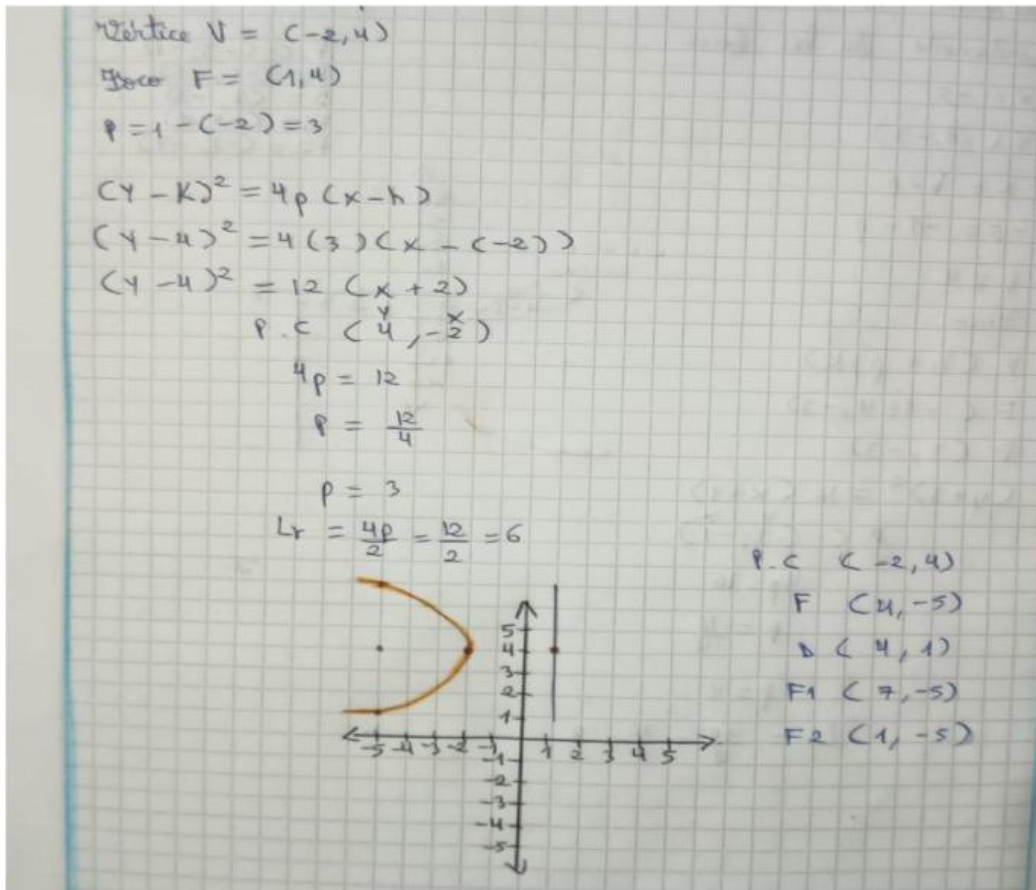 Vértice V = (-2,4)
Foco F = (1,4)
P = 1 - (-2) = 3
(Y - K)² = 4p (x-h)
(Y - 4)² = 4(3)(x - (-2))
(Y - 4)² = 12 (x + 2)
y x
P.C (4, -2)
4p = 12
P = 12/4
p = 3
Lr = 4p/2 = 12/2 = 6
P.C (-2,4)
F (4,-5)
D (4,1)
F1 (7,-5)
F2 (1,-5)
5
4
3
2
1
-5 -4 -3 -2 -1 1 2 3 4 5
-1
-2
-3
-4
-5